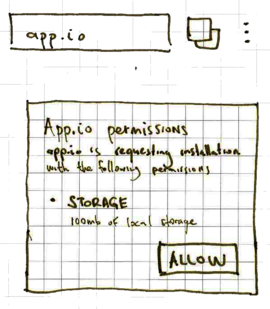 app.io
App.io permissions
app.io is requesting installation
with the following permissions
• STORAGE
100mb of local storage
ALLOW